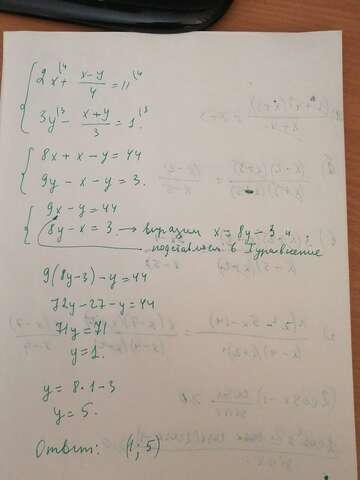 2x|⁴ + (x-y)/4 = 11|⁴
3y|³ - (x+y)/3 = 1|³
8x + x - y = 44
9y - x - y = 3.
9x - y = 44
8y - x = 3 → выразим x = 8y - 3 и
подставляем в 1 уравнение
9(8y-3) - y = 44
72y - 27 - y = 44
71y = 71
y = 1.
y = 8·1-3
y = 5.
Ответ: (1; 5)